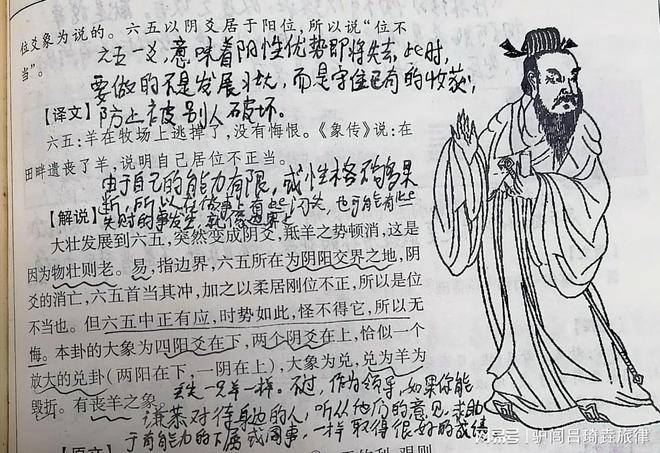 位爻象为说的。六五以阴爻居于阳位，所以说“位不
当”。
六五一爻，意味着阳性优势即将失去，此时，
要做的不是发展壮大，而是守住已有的收获，
防止被别人破坏。
【译文】
六五：羊在牧场上逃掉了，没有悔恨。《象传》说：在
田畔遗丧了羊，说明自己居位不正当。
由于自己的能力有限，或性格不够果
断，所以在做事上有些闪失，也可能有些
失财的事发生，就像边界上
【解说】
大壮发展到六五，突然变成阴爻，羝羊之势顿消，这是
因为物壮则老。易，指边界，六五所在为阴阳交界之地，阴
爻的消亡，六五首当其冲，加之以柔居刚位不正，所以是位
不当也。但六五中正有应，时势如此，怪不得它，所以无
悔。本卦的大象为四阳爻在下，两个阴爻在上，恰似一个
放大的兑卦（两阳在下，一阴在上），大象为兑，兑为羊为
毁折。有丧羊之象。
丢失一只羊一样。不过，作为领导，如果你能
谦恭对待身边的人，听从他们的意见，求助
于有能力的下属或同事，一样取得很好的成绩。
【原文】
搜狐号@驴闻吕琦垚旅律